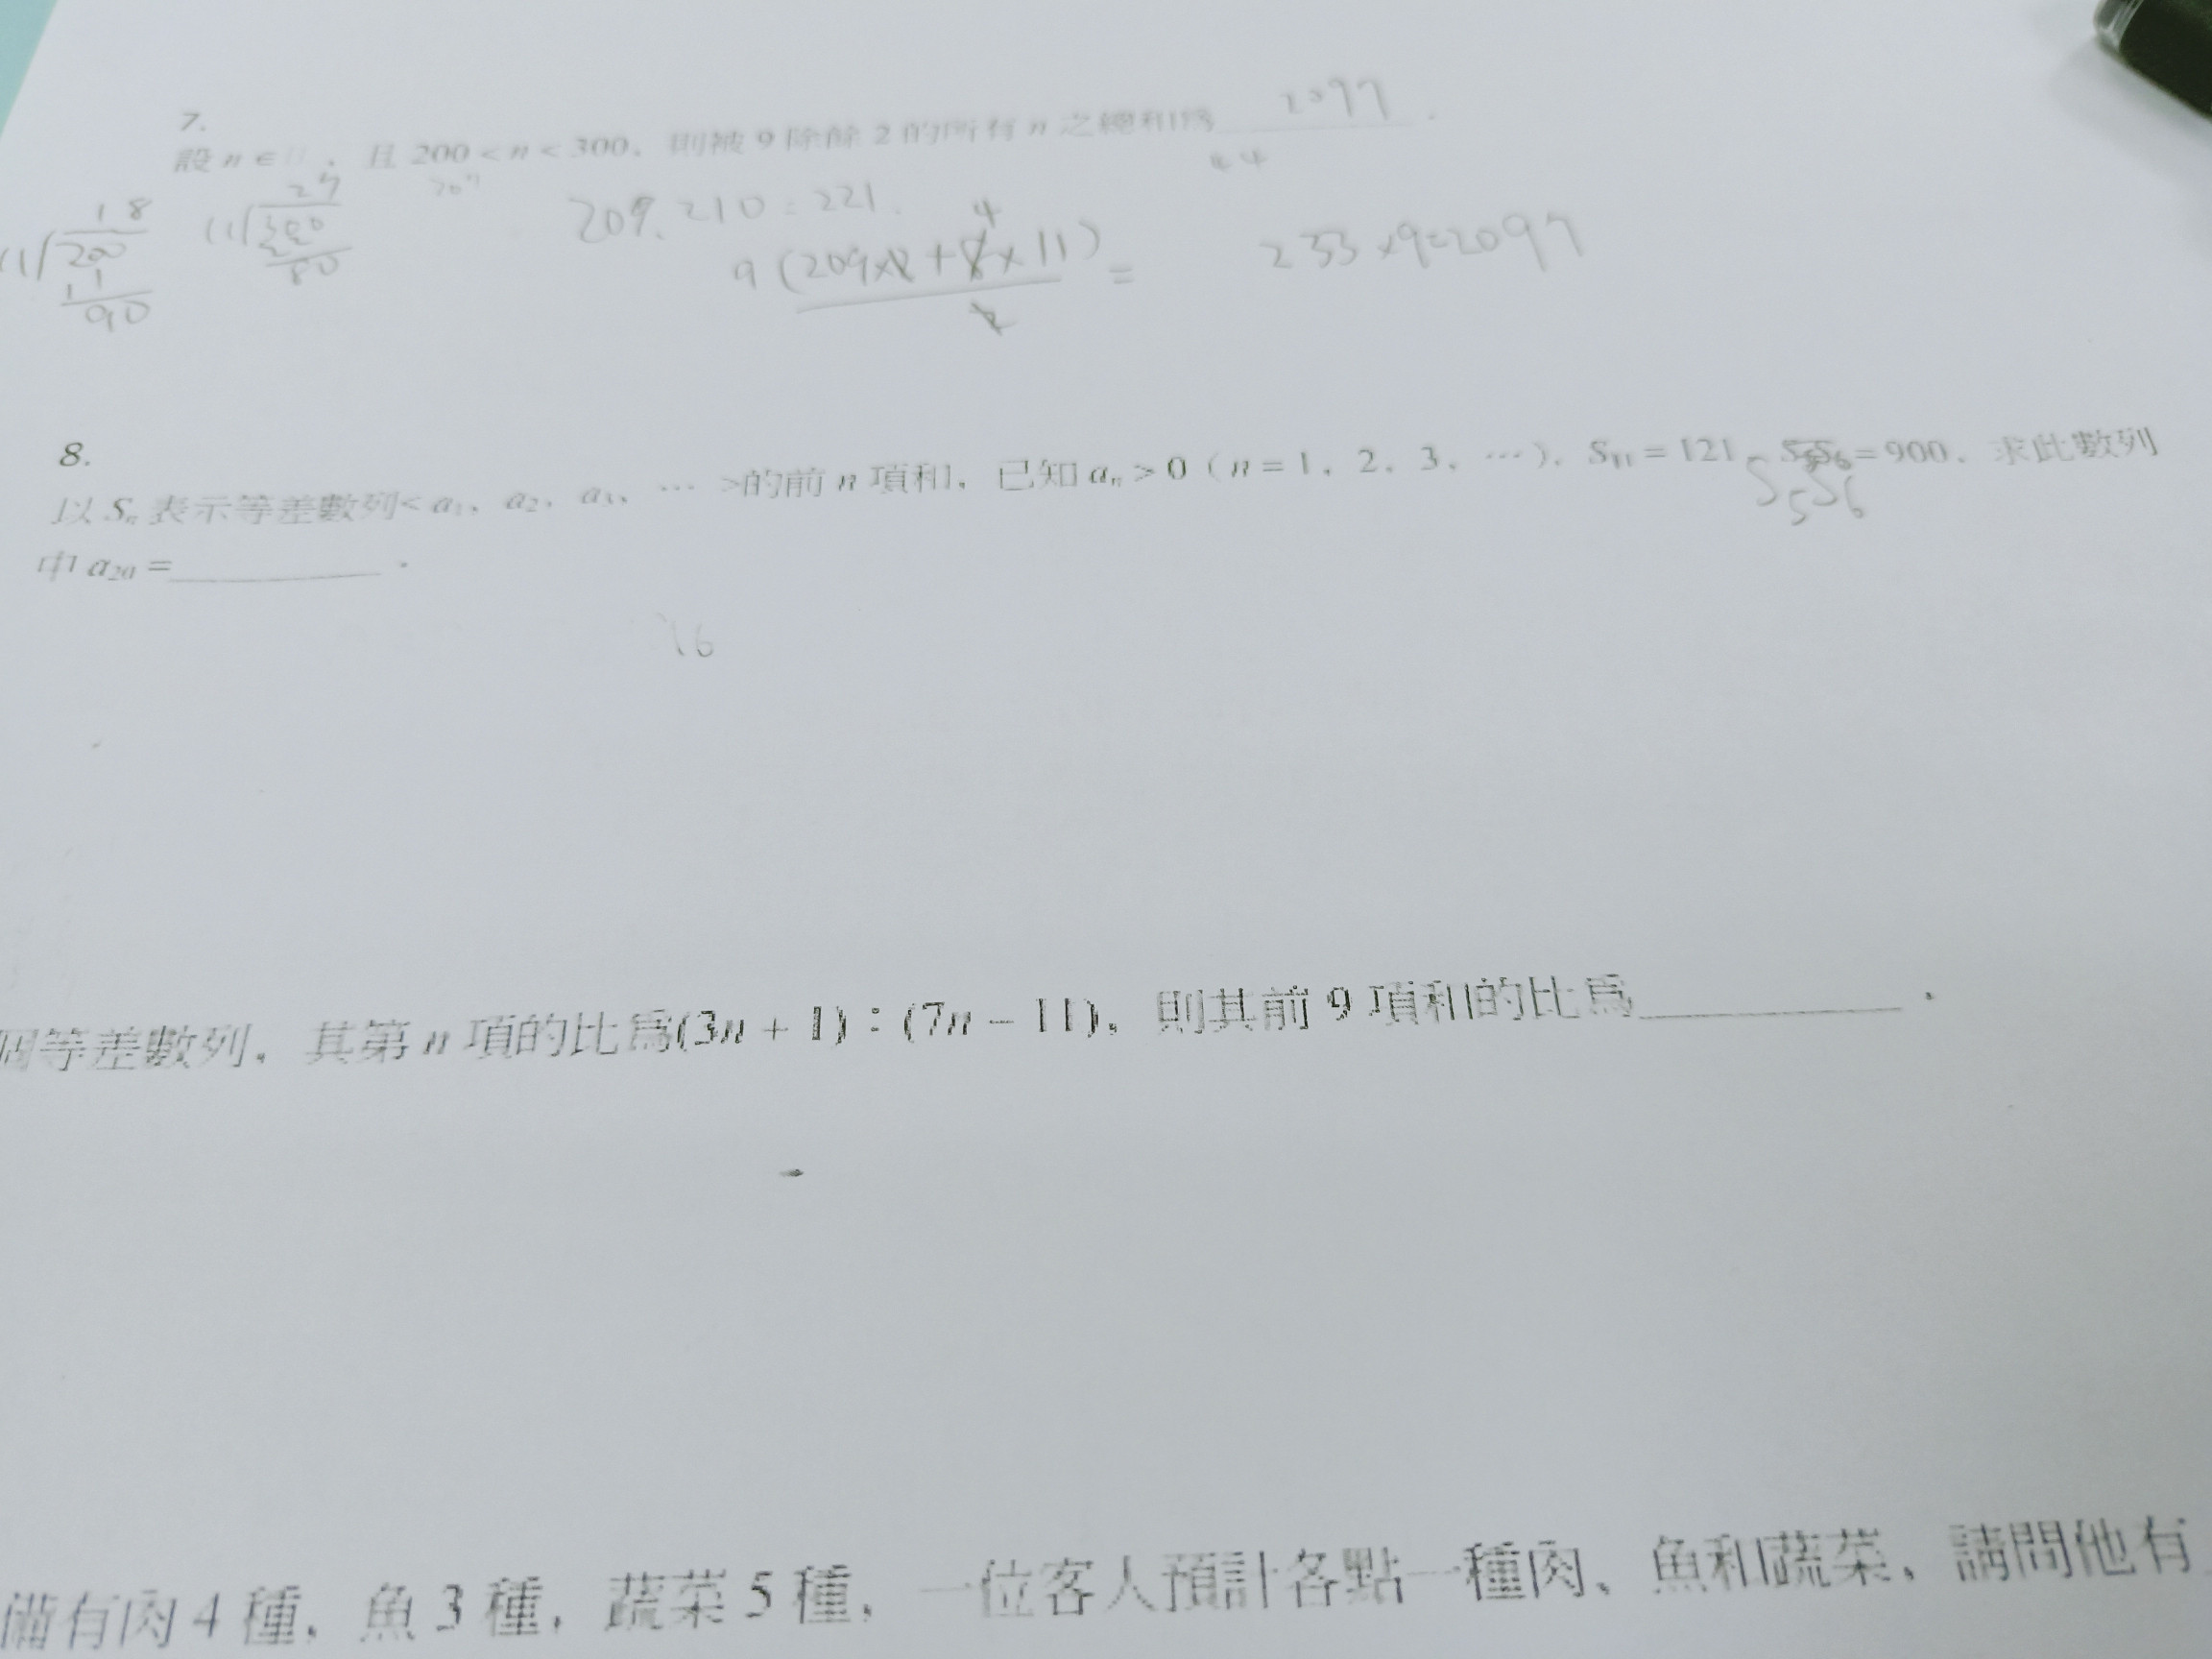 7.
設 n ∈ , 且 200 < n < 300, 則被 9 除餘 2 的所有 n 之總和為 2097 .
44
209
18
11 200
11
90
27
11 300
22
80
209. 210 = 221.
9 (209×2 + 8 4 × 11) =
2
233 × 9 = 2097
8.
以 Sn 表示等差數列< a1、a2、a3、… >的前 n 項和, 已知 an > 0 ( n = 1, 2, 3, … ), S11 = 121、S5S6 = 900, 求此數列
S5S6
中 a20 = .
16
個等差數列, 其第 n 項的比為(3n + 1) : (7n − 11), 則其前 9 項和的比為 .
備有肉 4 種, 魚 3 種, 蔬菜 5 種, 一位客人預計各點一種肉、魚和蔬菜、請問他有